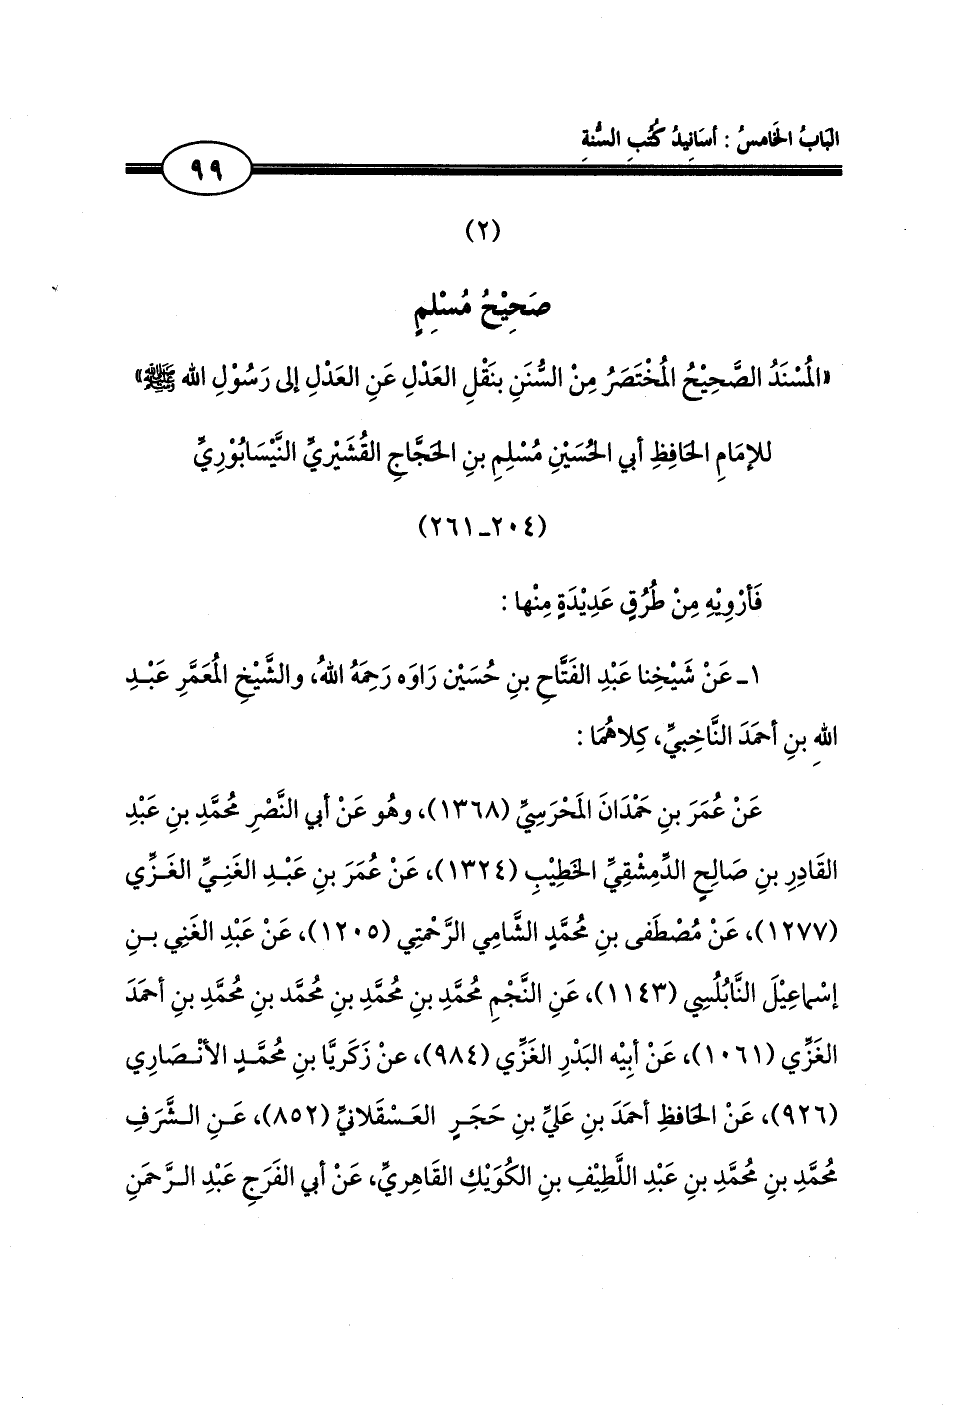 البَابُ الخَامسُ : أسَانِيدُ كُتُبِ السنَّةِ
٩٩
(٢)
صَحِيْحُ مُسْلِمٍ
«المُسْنَدُ الصَّحِيْحُ المُخْتَصَرُ مِنْ السُّنَنِ بنَقْلِ العَدْلِ عَنِ العَدْلِ إلى رَسُوْلِ الله ﷺ»
للإمَامِ الحَافِظِ أبي الحُسَيْنِ مُسْلِمِ بنِ الحَجَّاجِ القُشَيْريِّ النَّيْسَابُوْريِّ
(٢٠٤ـ٢٦١)
فَأرْوِيْهِ مِنْ طُرُقٍ عَدِيْدَةٍ مِنْها :
١ـ عَنْ شَيْخِنا عَبْدِ الفَتَّاحِ بنِ حُسَيْن رَاوَه رَحِمَهُ اللهُ، والشَّيْخِ المُعَمَّرِ عَبْـدِ
اللهِ بنِ أحمَدَ النَّاخِبيِّ، كِلاهُمَا :
عَنْ عُمَرَ بنِ حَمْدَانَ المَحْرَسِيِّ (١٣٦٨)، وهُو عَنْ أبي النَّصْرِ مُحَمَّدِ بنِ عَبْدِ
القَادِرِ بنِ صَالِحٍ الدِّمِشْقِيِّ الخَطِيْبِ (١٣٢٤)، عَنْ عُمَرَ بنِ عَبْـدِ الغَنِـيِّ الغَـزِّي
(١٢٧٧)، عَنْ مُصْطَفى بنِ مُحمَّدٍ الشَّامِي الرَّحْمَتِي (١٢٠٥)، عَنْ عَبْدِ الغَنِي بـنِ
إسْماعِيْلَ النَّابُلُسِي (١١٤٣)، عَنِ النَّجْمِ مُحمَّدِ بنِ مُحمَّدِ بنِ مُحمَّد بنِ مُحمَّدِ بنِ أحمَدَ
الغَزِّي (١٠٦١)، عَنْ أبِيْه البَدْرِ الغَزِّي (٩٨٤)، عنْ زَكَرِيَّا بنِ مُحمَّـدٍ الأنْـصَارِي
(٩٢٦)، عَنْ الحَافظِ أحمَدَ بنِ عَليِّ بنِ حَجَـرٍ العَسْقَلانيِّ (٨٥٢)، عَـنِ الـشَّرَفِ
مُحمَّدِ بنِ مُحمَّدِ بنِ عَبْدِ اللَّطِيْفِ بنِ الكُوَيْكِ القَاهِريِّ، عَنْ أبي الفَرَجِ عَبْدِ الـرَّحمَنِ